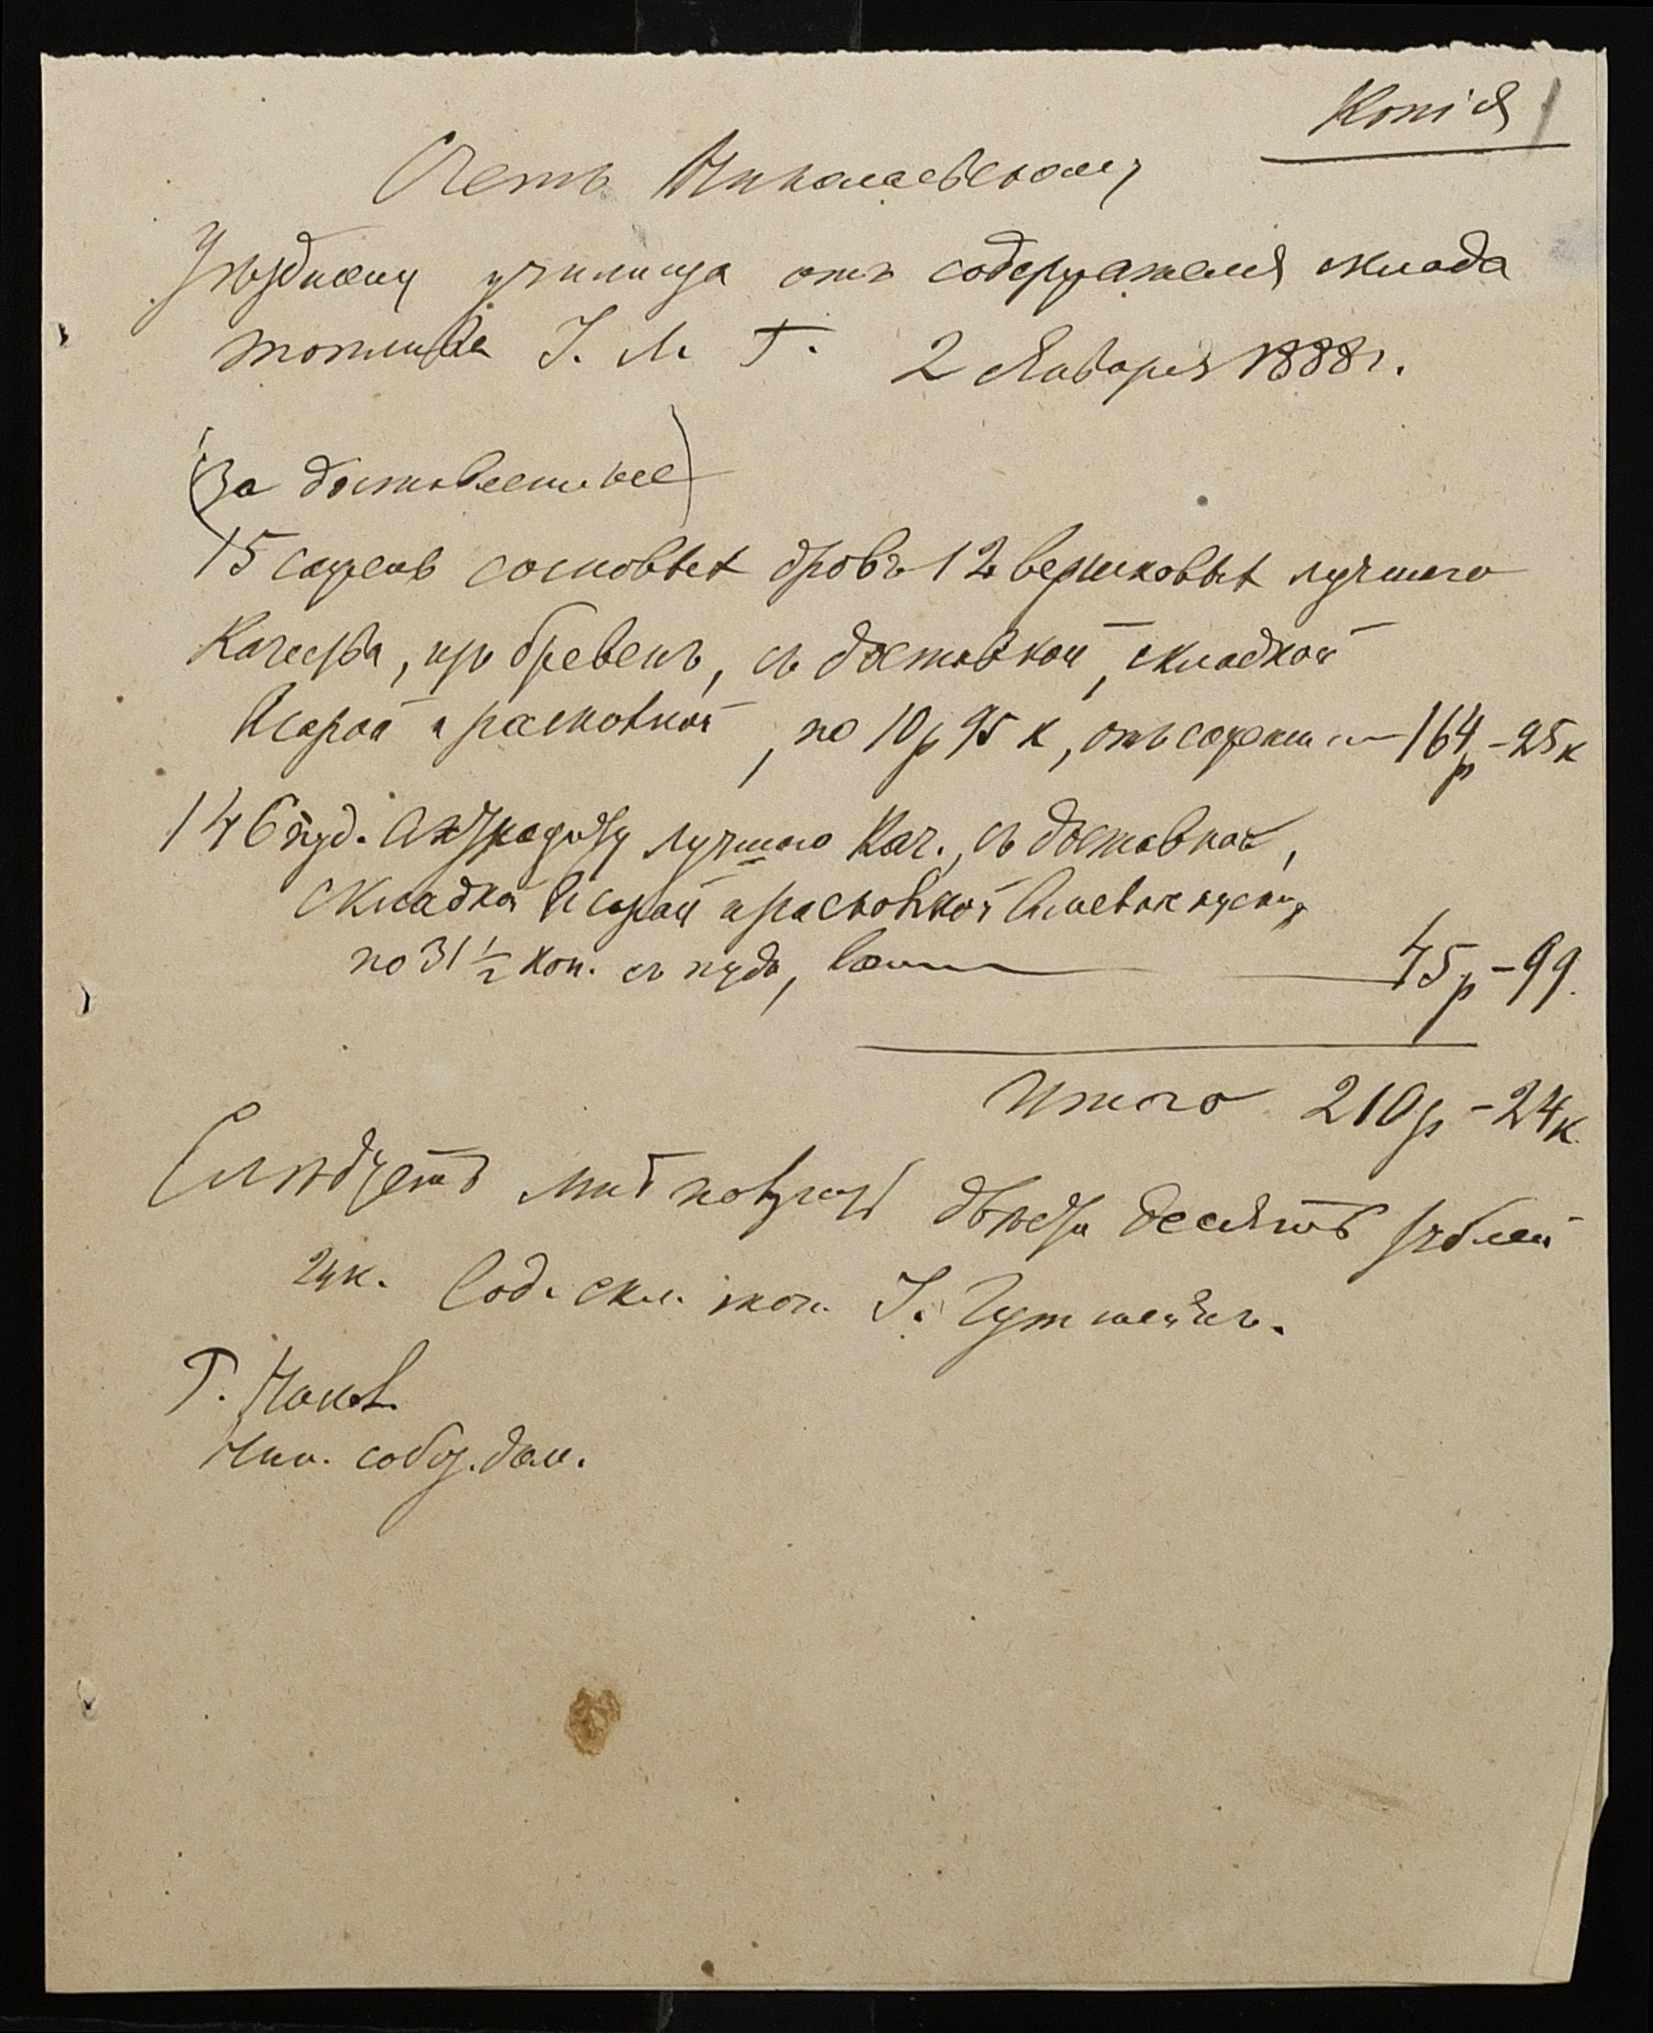 Копія
Счетъ Николаевскому
Уѣздному училища отъ содержателя склада
топлива І. М. Г. 2 Января 1888 г.
(За доставленные)
15 сажень сосновых дровъ 12 вершковых лучшаго
качества, изъ бревенъ, съ доставкой, складкой
в сарай и расколкой, по 10 р 95 к, отъ сажени — 164 р - 25 к
146 пуд. Антрациту лучшаго кач., съ доставкой,
складкой в сарай и расколкой
по 31 1/2 коп. съ пуда, — 45 р - 99.
Итого 210 р - 24 к.
Слѣдуетъ мнѣ получить двѣсти десять рублей
24 к. Сод. скл. топ. І. Гутштейнъ.
Г. Никол.
Ник. собст. дом.